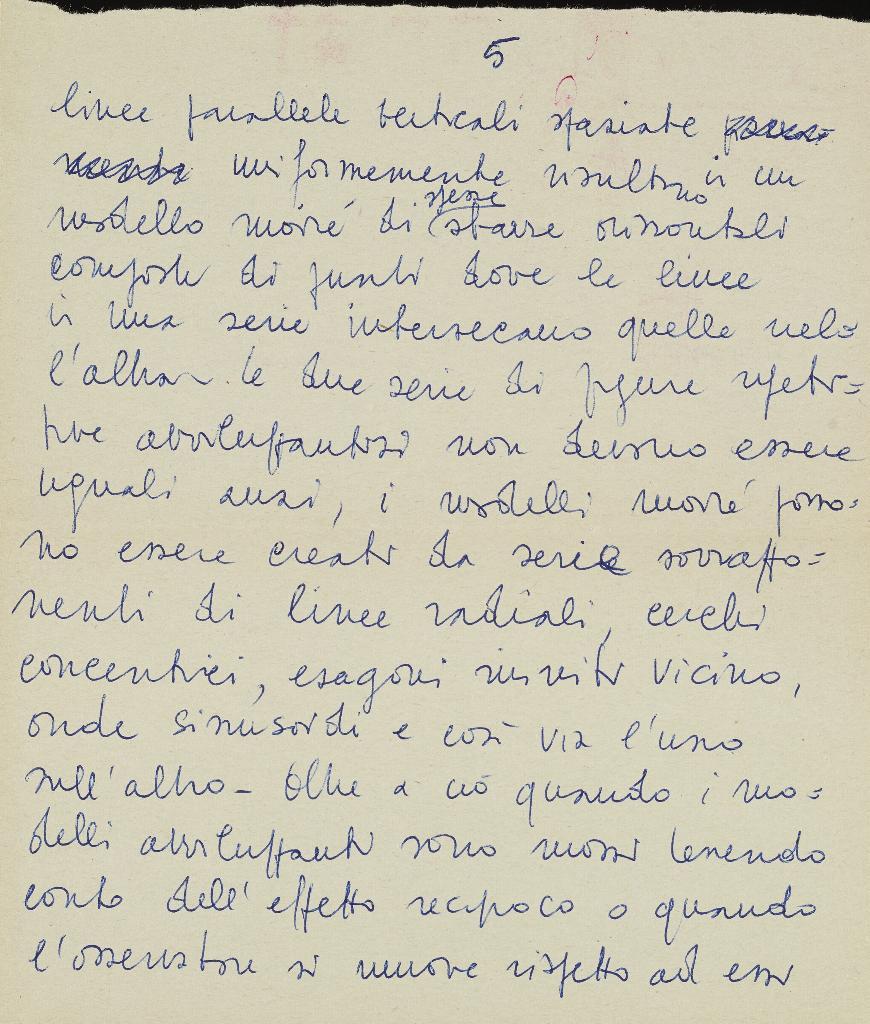 5
linee parallele verticali spaziate
uniformemente risultano in un
modello moiré di spesse sbarre orizzontali
composte di punti dove le linee
in una serie intersecano quelle nel=
l'altra. le due serie di figure ripeti=
tive avviluppantisi non devono essere
uguali anzi, i modelli moiré posso=
no essere creati da serie sovrappo=
nenti di linee radiali, cerchi
concentrici, esagoni uniti vicino,
onde sinusoidi e così via l'uno
sull'altro - Oltre a ciò quando i mo=
delli avviluppanti sono mossi tenendo
conto dell'effetto recipoco o quando
l'osservatore si muove rispetto ad essi